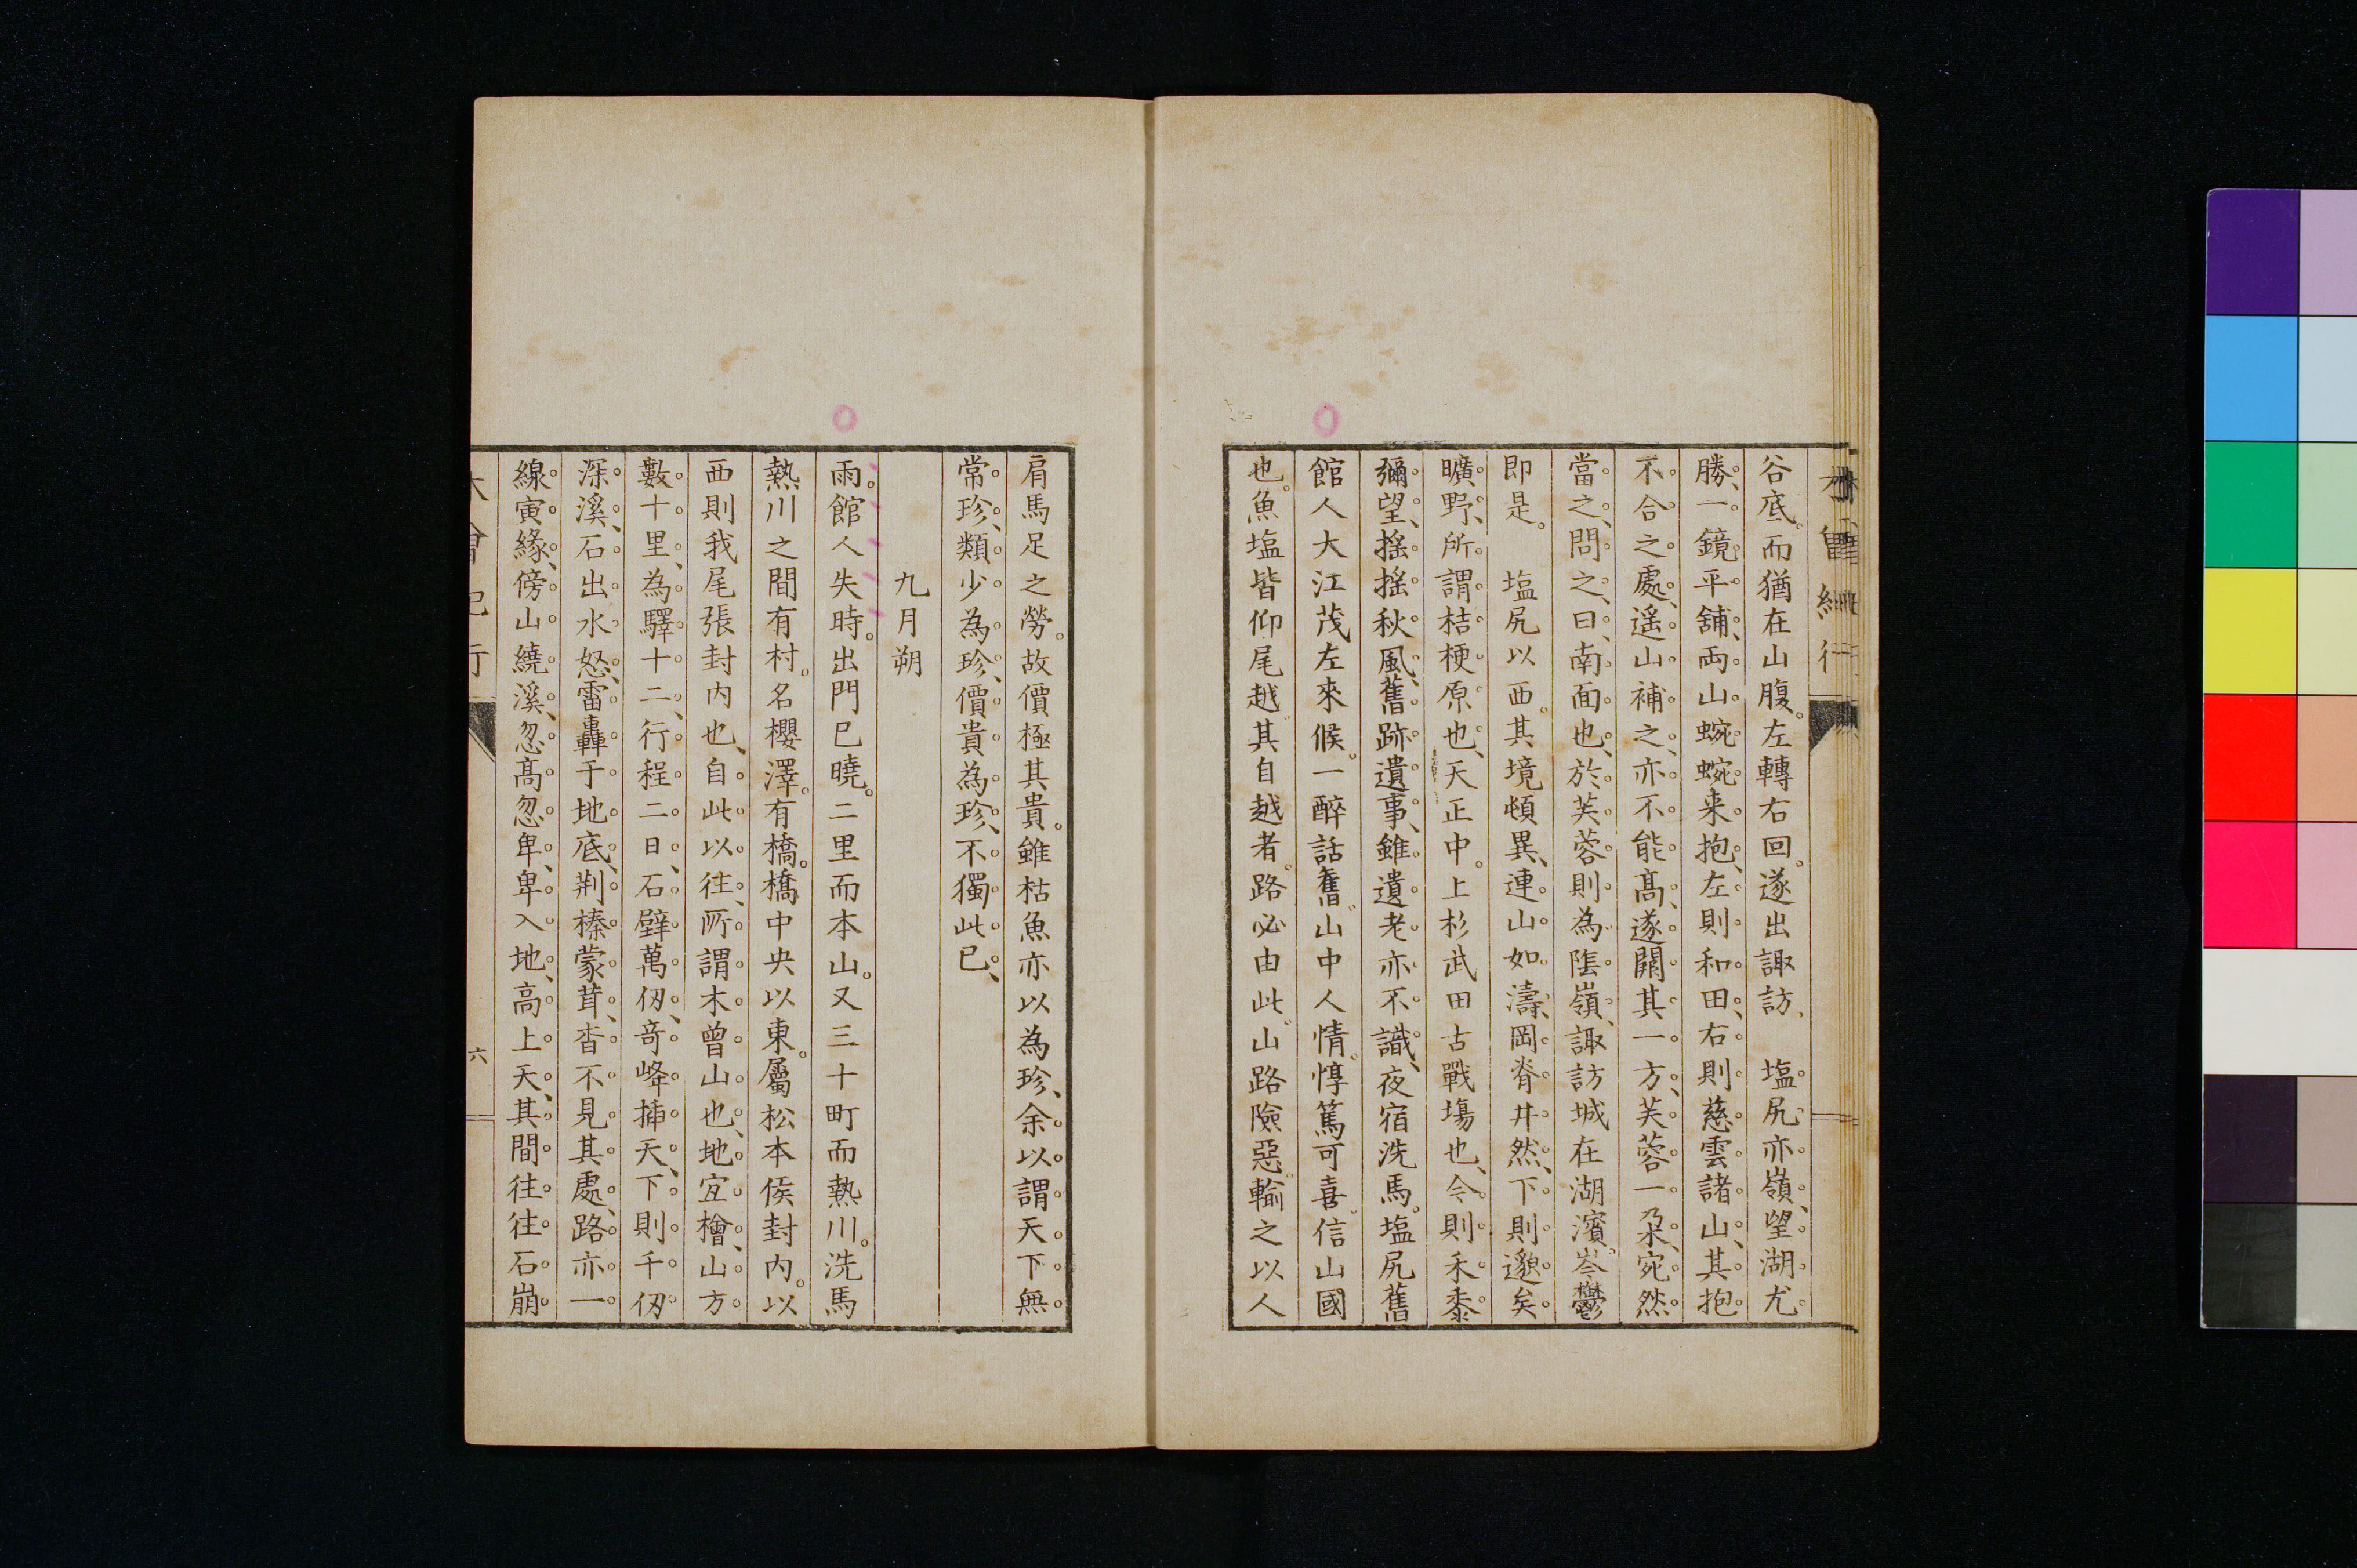 谷底。而猶在山腹。左轉右回。遂出諏訪、　塩尻亦嶺、望湖尤
勝、一鏡平舖、両山蜿蜿来抱、左則和田、右則慈雲諸山、其抱
不合之處、遥山補之、亦不能髙、遂闢其一方、芙蓉一朶、宛然
當之、問之、曰、南面也、於芙蓉則為陸嶺、諏訪城在湖濱。岑鬱
即是。　塩尻以西。其境頓異、連山如濤、岡脊井然、下則邈矣
曠野、所謂桔梗原也、天正中。上杉武田古戰塲也、今則禾黍
彌望、揺揺秋風、舊跡遺事、雖遺老亦不識、夜宿洗馬。塩尻舊
館人大江茂左來候。一醉話舊。山中人情。惇篤可喜。信山國
也。魚塩皆仰尾越。其自越者。路必由此。山路險惡。輸之以人
肩馬足之勞。故價極其貴。雖枯魚亦以為珍、余以謂天下無
常珍、類少為珍、價貴為珍、不獨此已、
九月朔
雨。館人失時。出門已曉。二里而本山。又三十町而熱川。洗馬
熱川之間有村。名櫻澤。有橋。橋中央以東。屬松本侯封內。以
西則我尾張封内也、自此以往、所謂木曾山也、地宜檜、山方
數十里、為驛十二、行程二日、石壁萬仭、竒峰挿天、下則千仭
深溪、石出水怒、雷轟于地底、荆榛蒙茸、杳不見其處、路亦一
線、寅緣、傍山繞溪、忽髙忽卑、卑入地、高上天、其間往往石崩
六